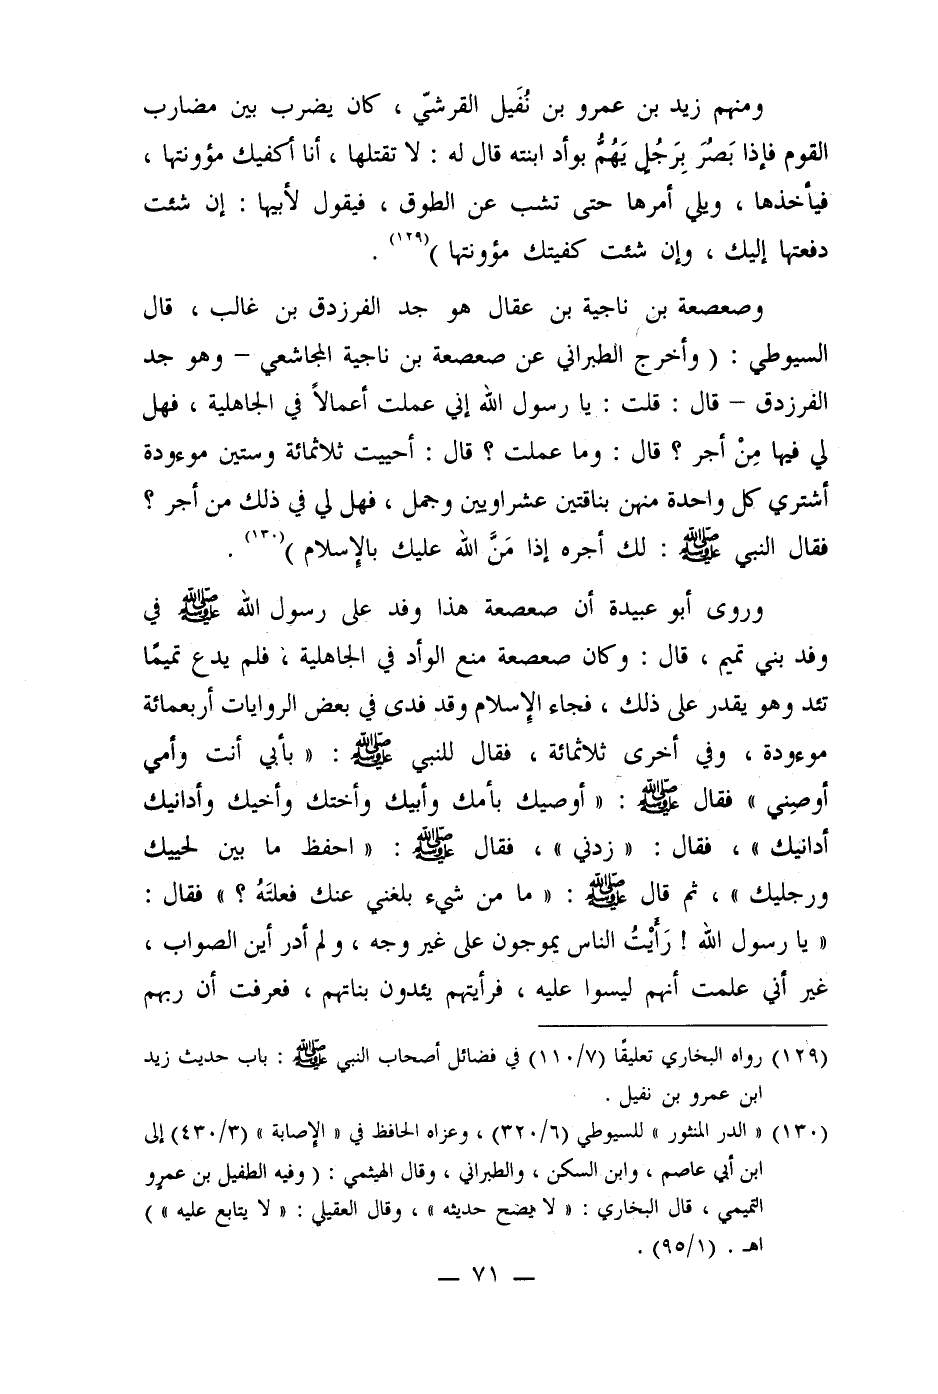 ومنهم زيد بن عمرو بن نُفَيل القرشيّ ، كان يضرب بين مضارب
القوم فإذا بَصُرَ بِرَجُلٍ يَهُمُّ بوأد ابنته قال له : لا تقتلها ، أنا أكفيك مؤونتها ،
فيأخذها ، ويلي أمرها حتى تشب عن الطوق ، فيقول لأبيها : إن شئت
دفعتها إليك ، وإن شئت كفيتك مؤونتها )(١٢٩) .
وصعصعة بن ناجية بن عقال هو جد الفرزدق بن غالب ، قال
السيوطي : ( وأخرج الطبراني عن صعصعة بن ناجية المجاشعي – وهو جد
الفرزدق – قال : قلت : يا رسول الله إني عملت أعمالاً في الجاهلية ، فهل
لي فيها مِنْ أجر ؟ قال : وما عملت ؟ قال : أحييت ثلاثمائة وستين موءودة
أشتري كل واحدة منهن بناقتين عشراويين وجمل ، فهل لي في ذلك من أجر ؟
فقال النبي ﷺ : لك أجره إذا مَنَّ الله عليك بالإسلام )(١٣٠) .
وروى أبو عبيدة أن صعصعة هذا وفد على رسول الله ﷺ في
وفد بني تميم ، قال : وكان صعصعة منع الوأد في الجاهلية ، فلم يدع تميمًا
تئد وهو يقدر على ذلك ، فجاء الإسلام وقد فدى في بعض الروايات أربعمائة
موءودة ، وفي أخرى ثلاثمائة ، فقال للنبي ﷺ : « بأبي أنت وأمي
أوصِني » فقال ﷺ : « أوصيك بأمك وأبيك وأختك وأخيك وأدانيك
أدانيك » ، فقال : « زدني » ، فقال ﷺ : « احفظ ما بين لحييك
ورجليك » ، ثم قال ﷺ : « ما من شيء بلغني عنك فعلتَهُ ؟ » فقال :
« يا رسول الله ! رَأَيْتُ الناس يموجون على غير وجه ، ولم أدر أين الصواب ،
غير أني علمت أنهم ليسوا عليه ، فرأيتهم يئدون بناتهم ، فعرفت أن ربهم
(١٢٩) رواه البخاري تعليقًا (١١٠/٧) في فضائل أصحاب النبي ﷺ : باب حديث زيد
ابن عمرو بن نفيل .
(١٣٠) « الدر المنثور » للسيوطي (٣٢٠/٦) ، وعزاه الحافظ في « الإصابة » (٤٣٠/٣) إلى
ابن أبي عاصم ، وابن السكن ، والطبراني ، وقال الهيثمي : ( وفيه الطفيل بن عمرو
التميمي ، قال البخاري : « لا يصح حديثه » ، وقال العقيلي : « لا يتابع عليه » )
اهـ . (٩٥/١) .
— ٧١ —